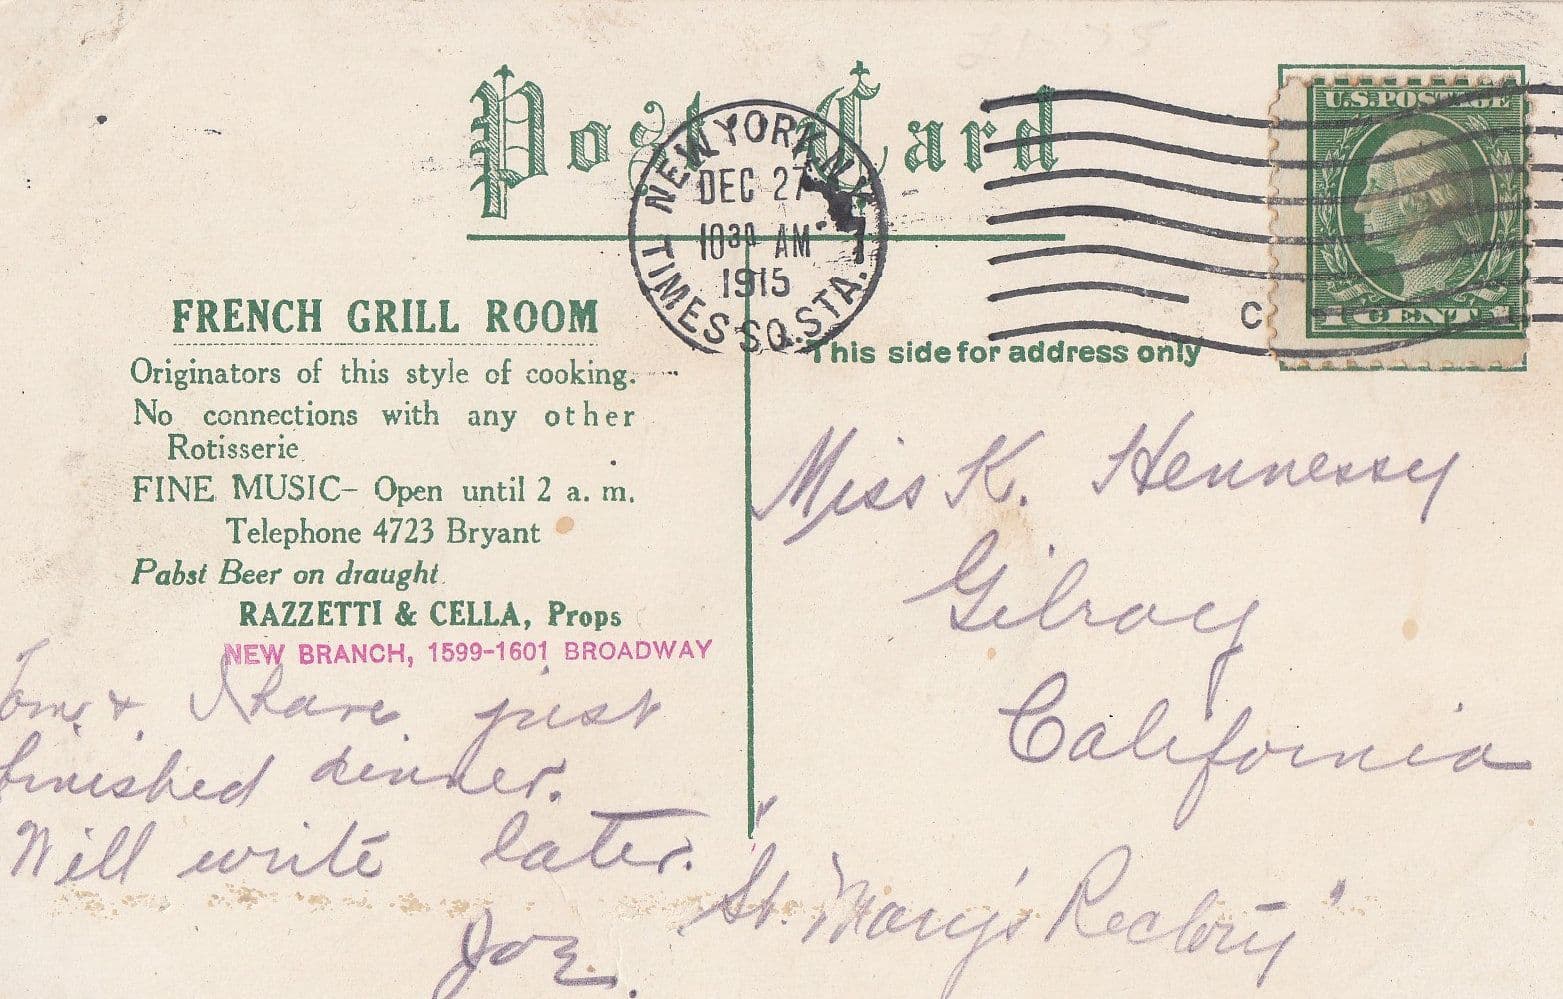 Post Card
NEW YORK, N.Y.
DEC 27
10 30 AM
1915
TIMES SQ. STA.
U.S. POSTAGE
1 CENT 1
C
This side for address only
FRENCH GRILL ROOM
Originators of this style of cooking.
No connections with any other
Rotisserie
FINE MUSIC– Open until 2 a. m.
Telephone 4723 Bryant
Pabst Beer on draught.
RAZZETTI & CELLA, Props
NEW BRANCH, 1599-1601 BROADWAY
Tom & I have just
finished dinner.
Will write later.
Joe.
Miss K. Hennessy
Gilroy
California
"St. Mary's Rectory"